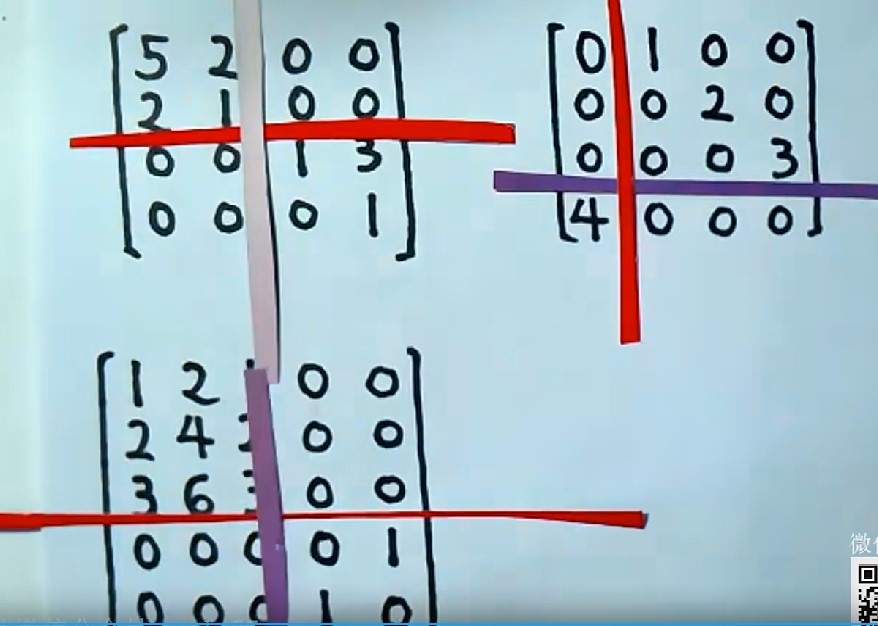 5 2 0 0
2 1 0 0
0 0 1 3
0 0 0 1
0 1 0 0
0 0 2 0
0 0 0 3
4 0 0 0
1 2 0 0
2 4 2 0 0
3 6 3 0 0
0 0 0 0 1
0 0 0 1 0
微